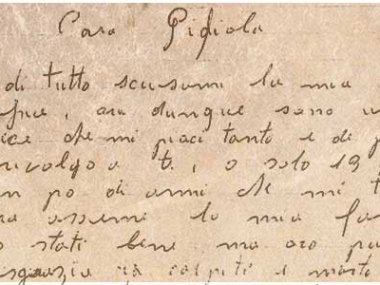 Cara Pidiola
di tutto scusami la mia
, ora dunque sono
ice che mi piaci tanto e di p
rivolgo a t. , o solo 19
n po di anni che mi t
ra assieme la mia fa
o stati bene ma ora pu
sgrazia ci colpiti e morto